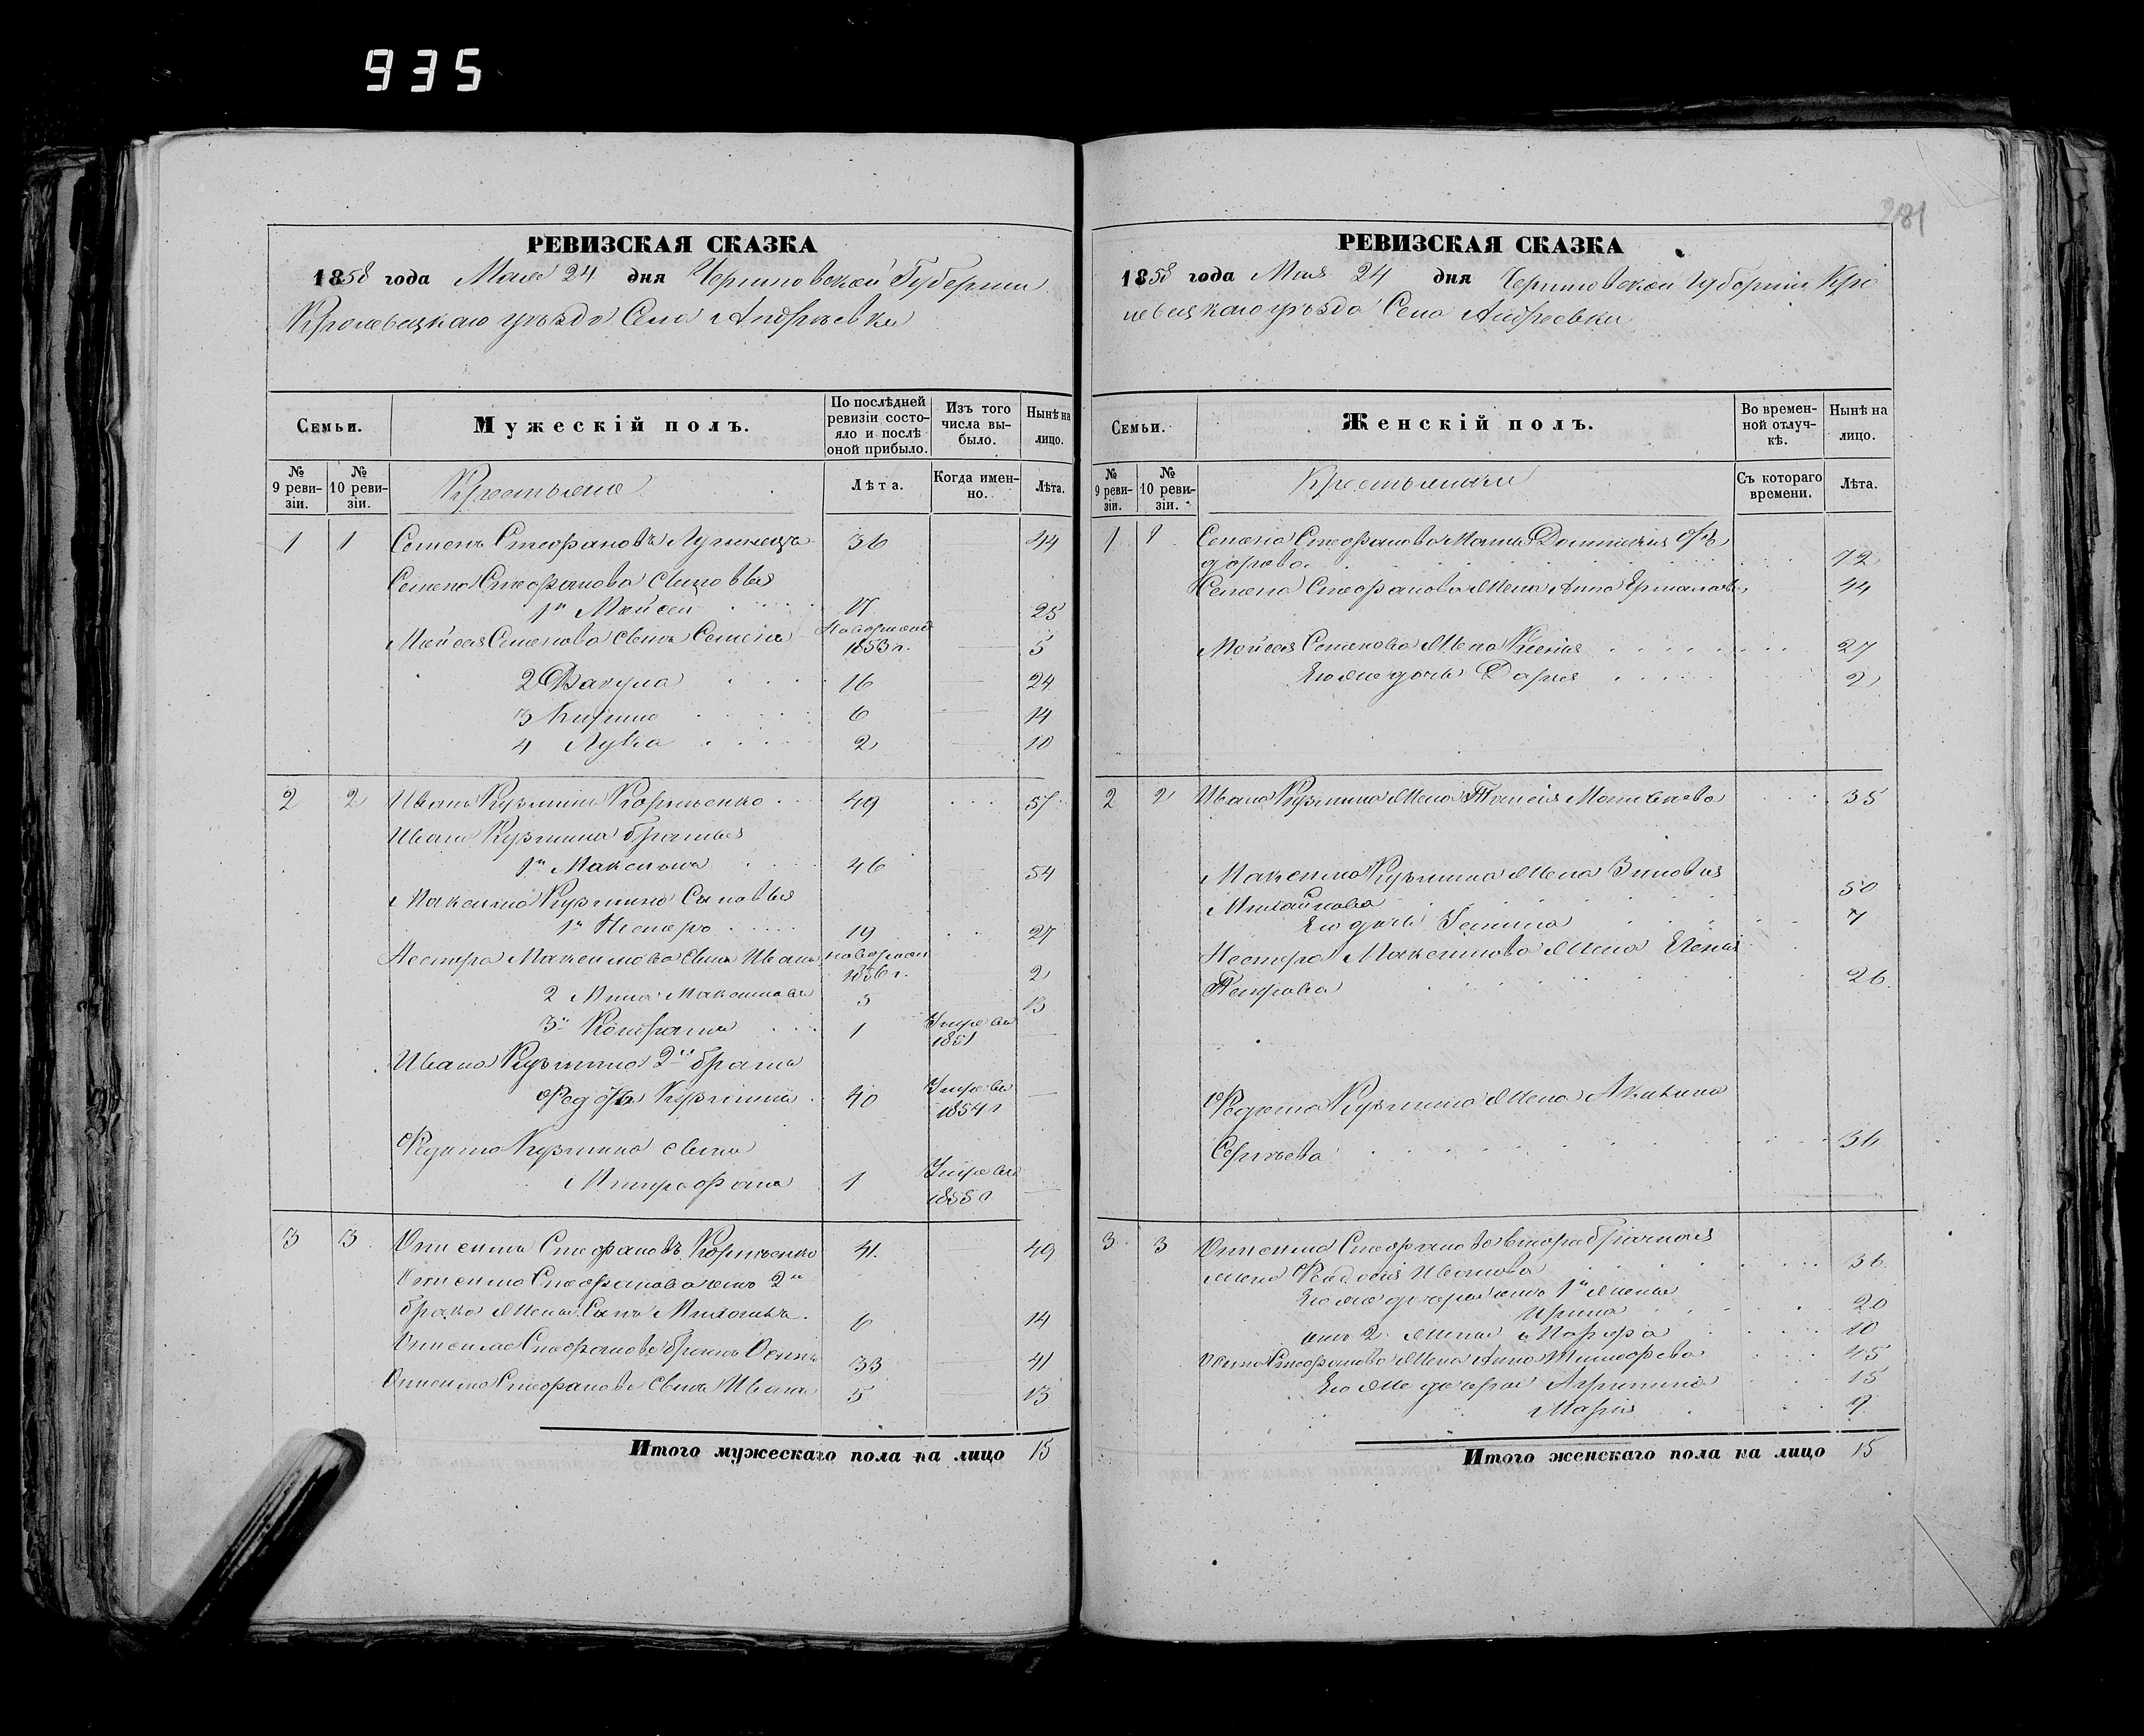 935
281
РЕВИЗСКАЯ СКАЗКА
1858 года Мая 24 дня Черниговской Губернии
Кролевецкаго уезда Села Андреевки
Семьи. Мужескій полъ. По послѣдней ревизіи состояло и послѣ оной прибыло. Изъ того числа выбыло. Нынѣ на лицо.
№ 9 ревизіи. № 10 ревизіи. Крестьяне Лѣта. Когда именно. Лѣта.
1 1 Семенъ Стефановъ 36 44
Семена Стефанова сыновья
1й Мойсей 17 25
Мойсея Семенова сынъ Семенъ новорожд 1853 г. 5
2 Вакула 16 24
3 6 14
4 Лука 2 10
2 2 Иванъ Кузминъ 49 57
Ивана Кузмина братья
1й Максимъ 46 54
Максима Кузмина сыновья
1й Несторъ 19 27
Нестора Максимова сынъ Иванъ новорожд 1856 г. 2
2 Мина Максимовъ 5 13
3й Кондратъ 1 Умре въ 1851
Ивана Кузмина 2й братъ
Федоръ Кузминъ 40 Умре въ 1854 г
Федота Кузмина сынъ
Митрофанъ 1 Умре въ 1855 г
3 3 Онисимъ Стефановъ 41 49
Онисима Стефанова отъ 2й
брака жены сынъ Михаилъ 6 14
Онисима Стефанова братъ Осипъ 33 41
Стефанова сынъ Иванъ 5 13
Итого мужескаго пола на лицо 15
РЕВИЗСКАЯ СКАЗКА
1858 года Мая 24 дня Черниговской Губерніи Кро
левецкаго уезда Села Андреевки
Семьи. Женскій полъ. Во временной отлучкѣ. Нынѣ на лицо.
№ 9 ревизіи. № 10 ревизіи. Крестьянки Съ котораго времени. Лѣта.
1 1 Семена Стефанова Мать Домникія Фе
дорова 72
Семена Стефанова Жена Анна 44
Мойсея Семенова Жена Ксенія 27
Ею же дочь Дарья 2
2 2 Ивана Кузмина Жена Матвеева 35
Максима Кузмина Жена Зиновія
Михайлова 50
Ею дочь 7
Нестора Максимова Жена Евгенія
Петрова 26
Кузмина Жена Акилина
Сергеева 36
3 3 Онисима Стефанова второбрачная
жена Феодосія Иванова 36
Ею же дочери отъ 1й жены
Ирина 20
отъ 2 жены Марфа 10
Осипа Стефанова Жена Анна Тимофеева 45
Ею же дочери Агрипина 15
Марія 9
Итого женскаго пола на лицо 15